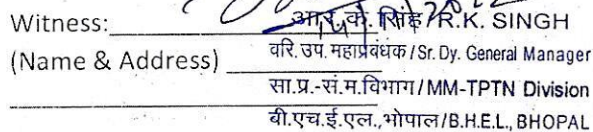 Witness: आर. के. सिंह / R.K. SINGH
(Name & Address) वरि. उप. महाप्रबंधक / Sr. Dy. General Manager
सा.प्र.-सं.म.विभाग / MM-TPTN Division
बी.एच.ई.एल., भोपाल / B.H.E.L., BHOPAL